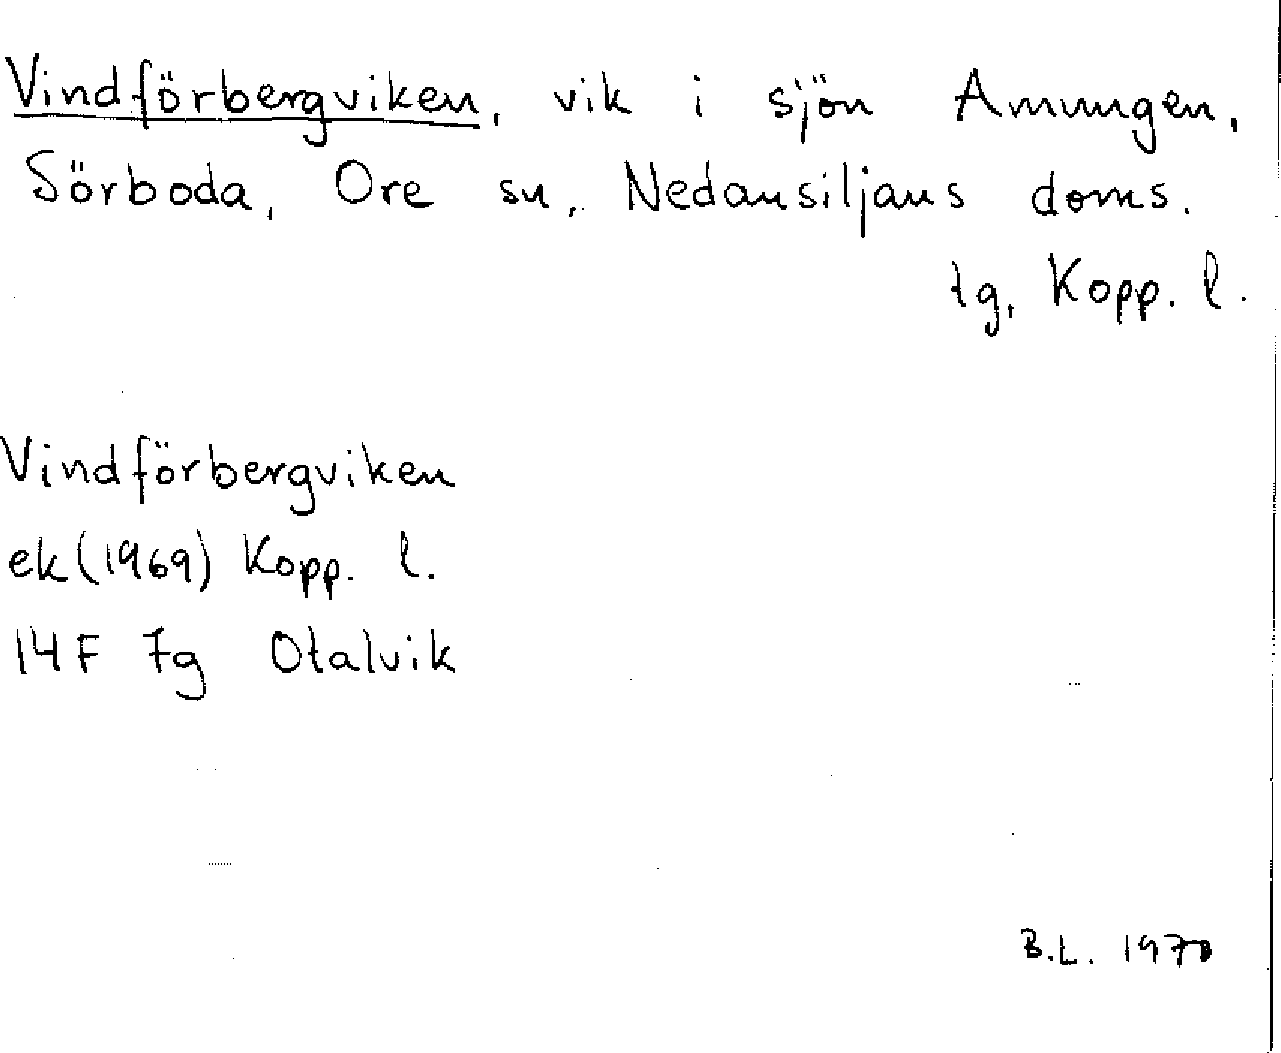 Vindförbergviken, vik i sjön Amungen,
Sörboda, Ore sn, Nedansiljans doms.
tg, Kopp. l.
Vindförbergviken
ek (1969) Kopp. l.
14F 7g Otalvik
B.L. 1970